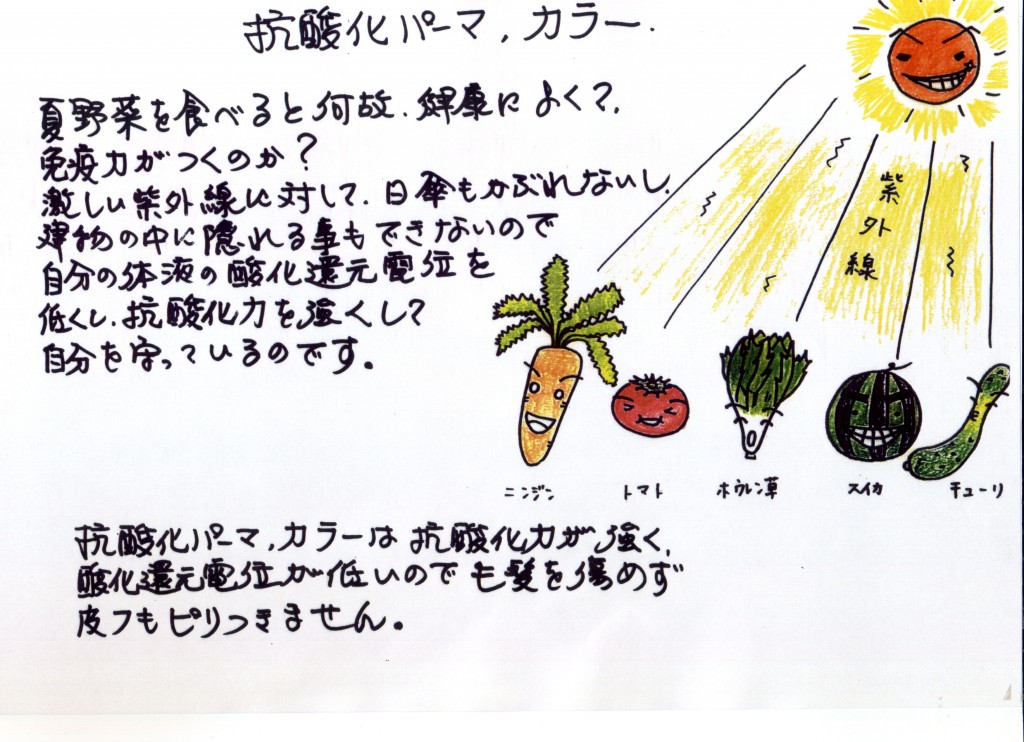 抗酸化パーマ,カラー.
夏野菜を食べると何故.健康によく?.
免疫力がつくのか?
激しい紫外線に対して.日傘もかぶれないし.
建物の中に隠れる事もできないので
自分の体液の酸化還元電位を
低くし.抗酸化力を強くして
自分を守っているのです。
紫
外
線
ニンジン トマト ホウレン草 スイカ キューリ
抗酸化パーマ,カラーは抗酸化力が強く,
酸化還元電位が低いのでも髪を傷めず
皮フもピリつきません。